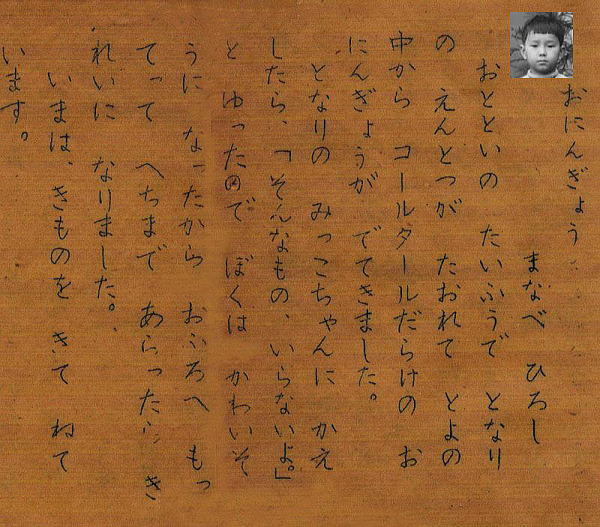 おにんぎょう
まなべ ひろし
おとといの たいふうで となり
の えんとつが たおれて とよの
中から コールタールだらけの お
にんぎょうが でてきました。
となりの みっこちゃんに かえ
したら、「そんなもの、いらないよ。」
と ゆったので ぼくは かわいそ
うに なったから おふろへ もっ
てって へちまで あらったら き
れいに なりました。
いまは、きものを きて ねて
います。